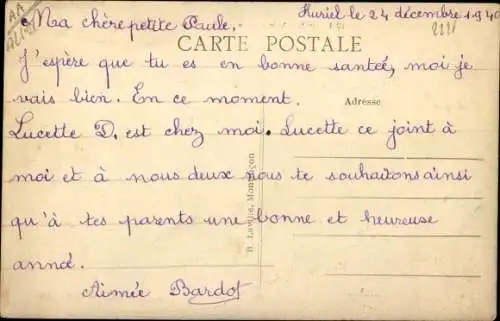 Huriel le 24 décembre 1940
Ma chère petite Paule.
CARTE POSTALE
J'espère que tu es en bonne santée, moi je
vais bien. En ce moment.
Adresse
Lucette D. est chez moi. Lucette ce joint à
moi et à nous deux nous te souhaitons ainsi
qu'à tes parents une bonne et heureuse
année.
Aimée Bardot